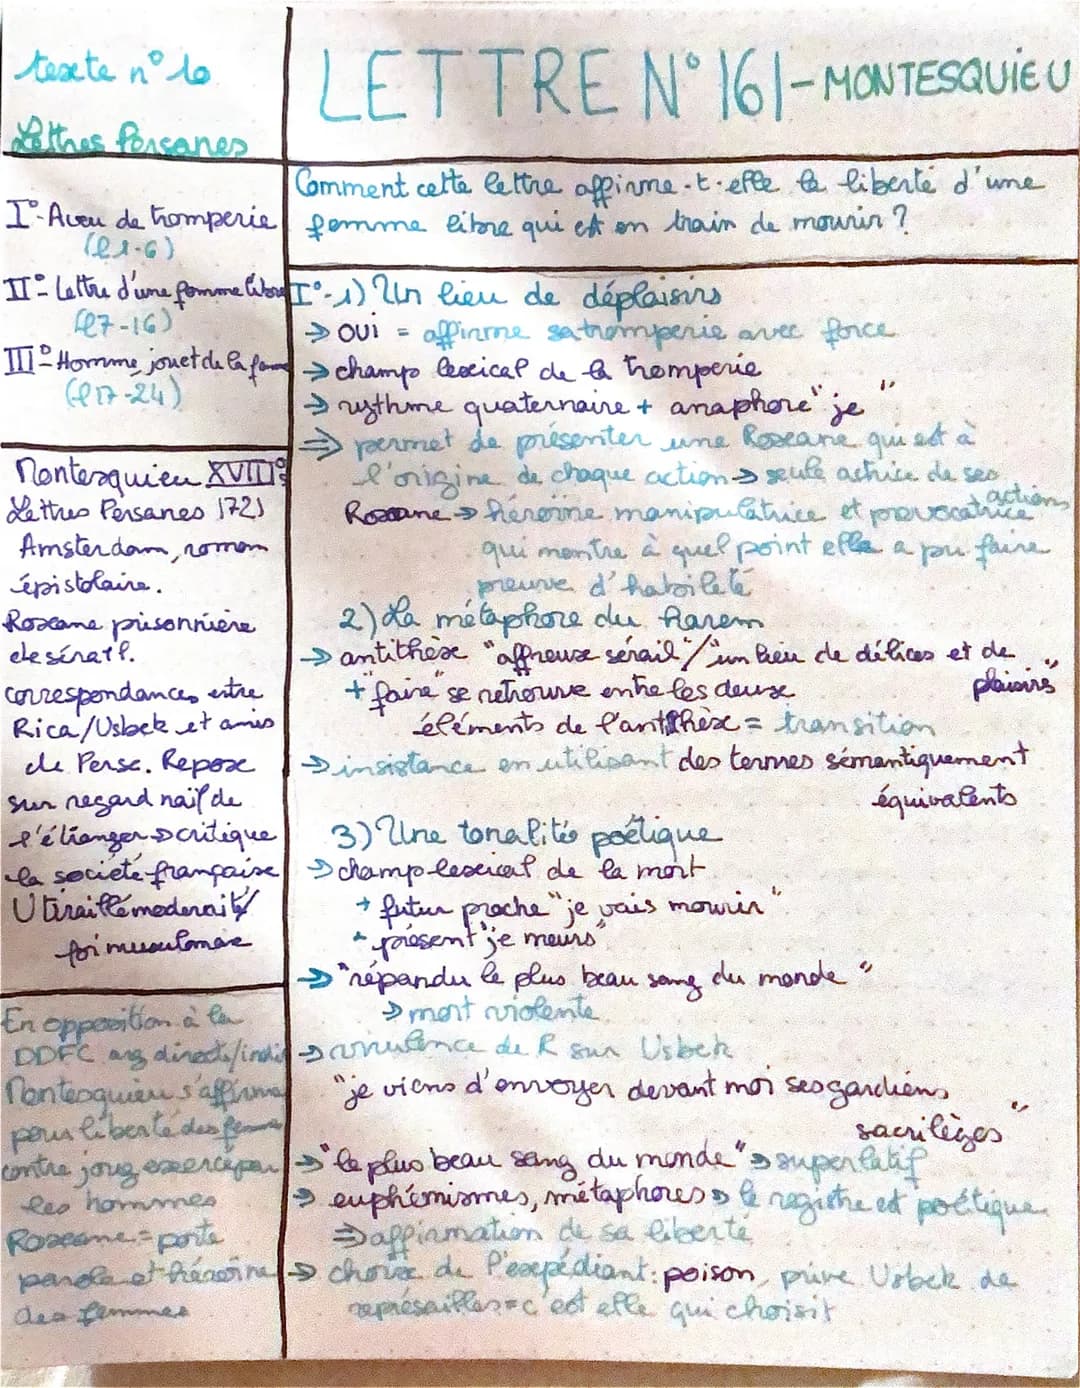 texte n° 10
Lettres Persanes
LETTRE N° 161 - MONTESQUIEU
I°- Aveu de tromperie
(l1-6)
II°- Lettre d'une femme libre
(l7-16)
III°- Homme, jouet de la femme
(l17-24)
Montesquieu XVIII°s
Lettres Persanes 1721
Amsterdam, roman
épistolaire.
Roxane prisonnière
de sérail.
correspondances entre
Rica/Usbek et amis
de Perse. Repose
sur regard naïf de
l'étranger → critique
la société française
U tiraillé modernité/
foi musulmane
En opposition à la
DDFC arg direct/indi
Montesquieu s'affirme
pour liberté des femmes
contre joug exercé par
les hommes
Roxane = porte
parole et héroïne
des femmes
Comment cette lettre affirme-t-elle la liberté d'une
femme libre qui est en train de mourir ?
I°- 1) Un lieu de déplaisirs
→ OUI = affirme sa tromperie avec force
→ champ lexical de la tromperie
→ rythme quaternaire + anaphore "je"
⇒ permet de présenter une Roxane qui est à
l'origine de chaque action → seule actrice de ses
actions
Roxane → héroïne manipulatrice et provocatrice
qui montre à quel point elle a pu faire
preuve d'habileté
2) La métaphore du harem
→ antithèse "affreux sérail"/"un lieu de délices et de
plaisirs"
+ "faire" se retrouve entre les deux
éléments de l'antithèse = transition
→ insistance en utilisant des termes sémantiquement
équivalents
3) Une tonalité poétique
→ champ lexical de la mort
+ futur proche "je vais mourir"
+ présent "je meurs"
→ "répandu le plus beau sang du monde"
→ mort violente
→ virulence de R sur Usbek
"je viens d'envoyer devant moi ses gardiens
sacrilèges"
→ "le plus beau sang du monde" → superlatif
→ euphémismes, métaphores → le registre est poétique
⇒ affirmation de sa liberté
→ choix de l'expédiant : poison, prive Usbek de
représailles = c'est elle qui choisit